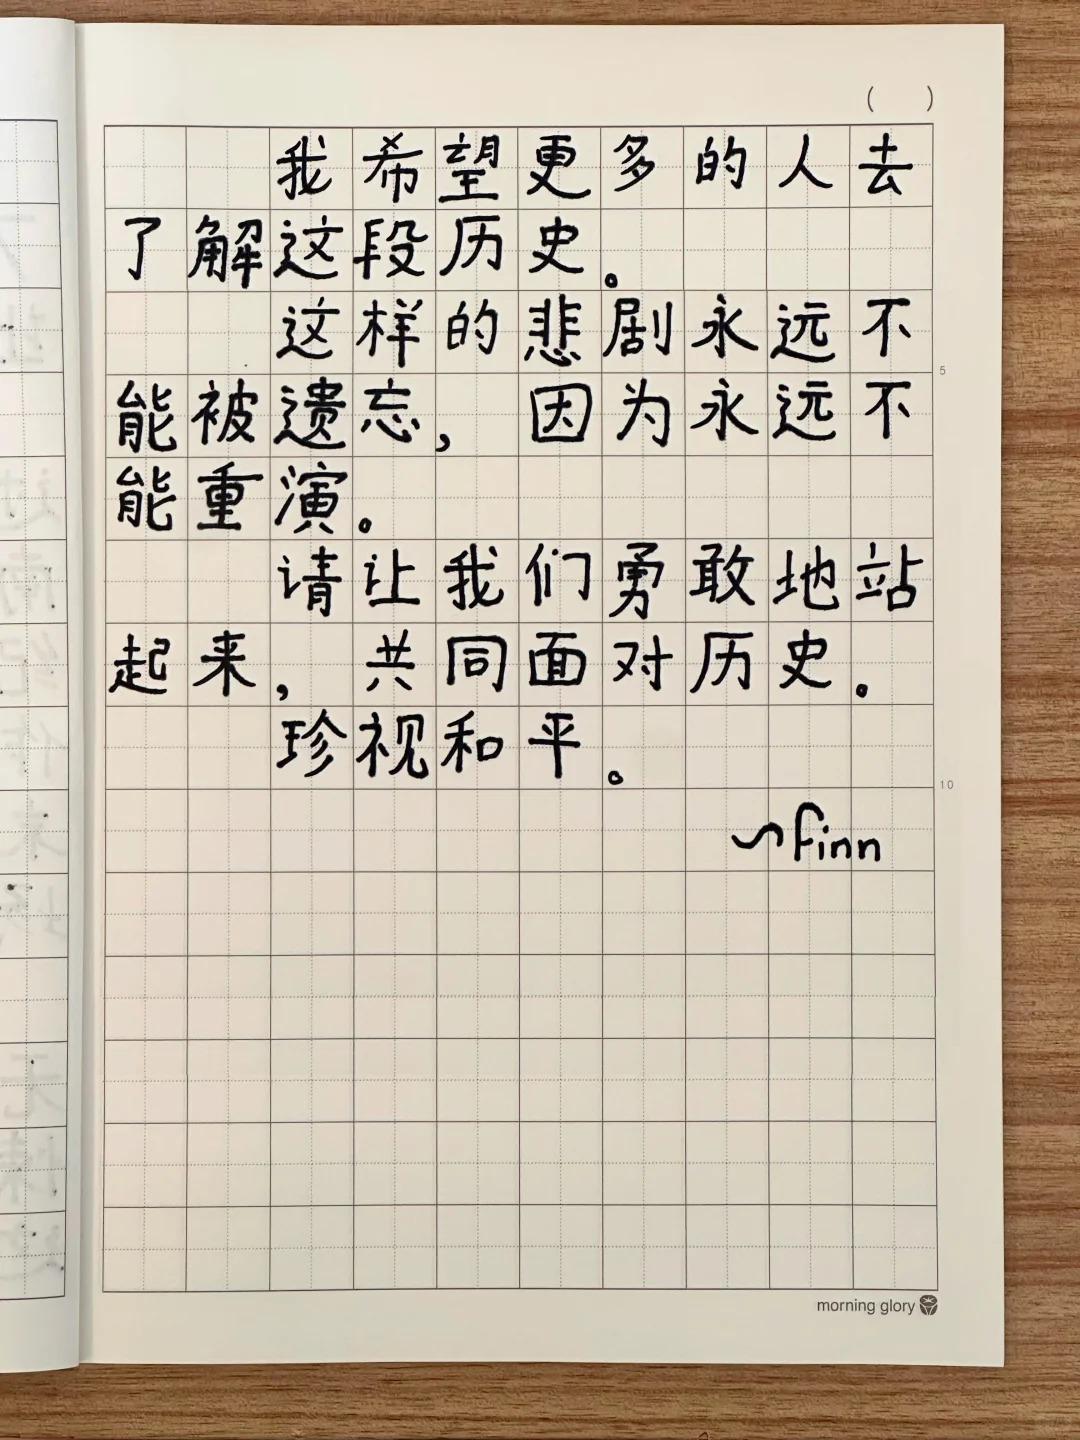 (   )
我希望更多的人去
了解这段历史。
这样的悲剧永远不
5
能被遗忘，因为永远不
能重演。
请让我们勇敢地站
起来，共同面对历史。
珍视和平。
10
~finn
morning glory